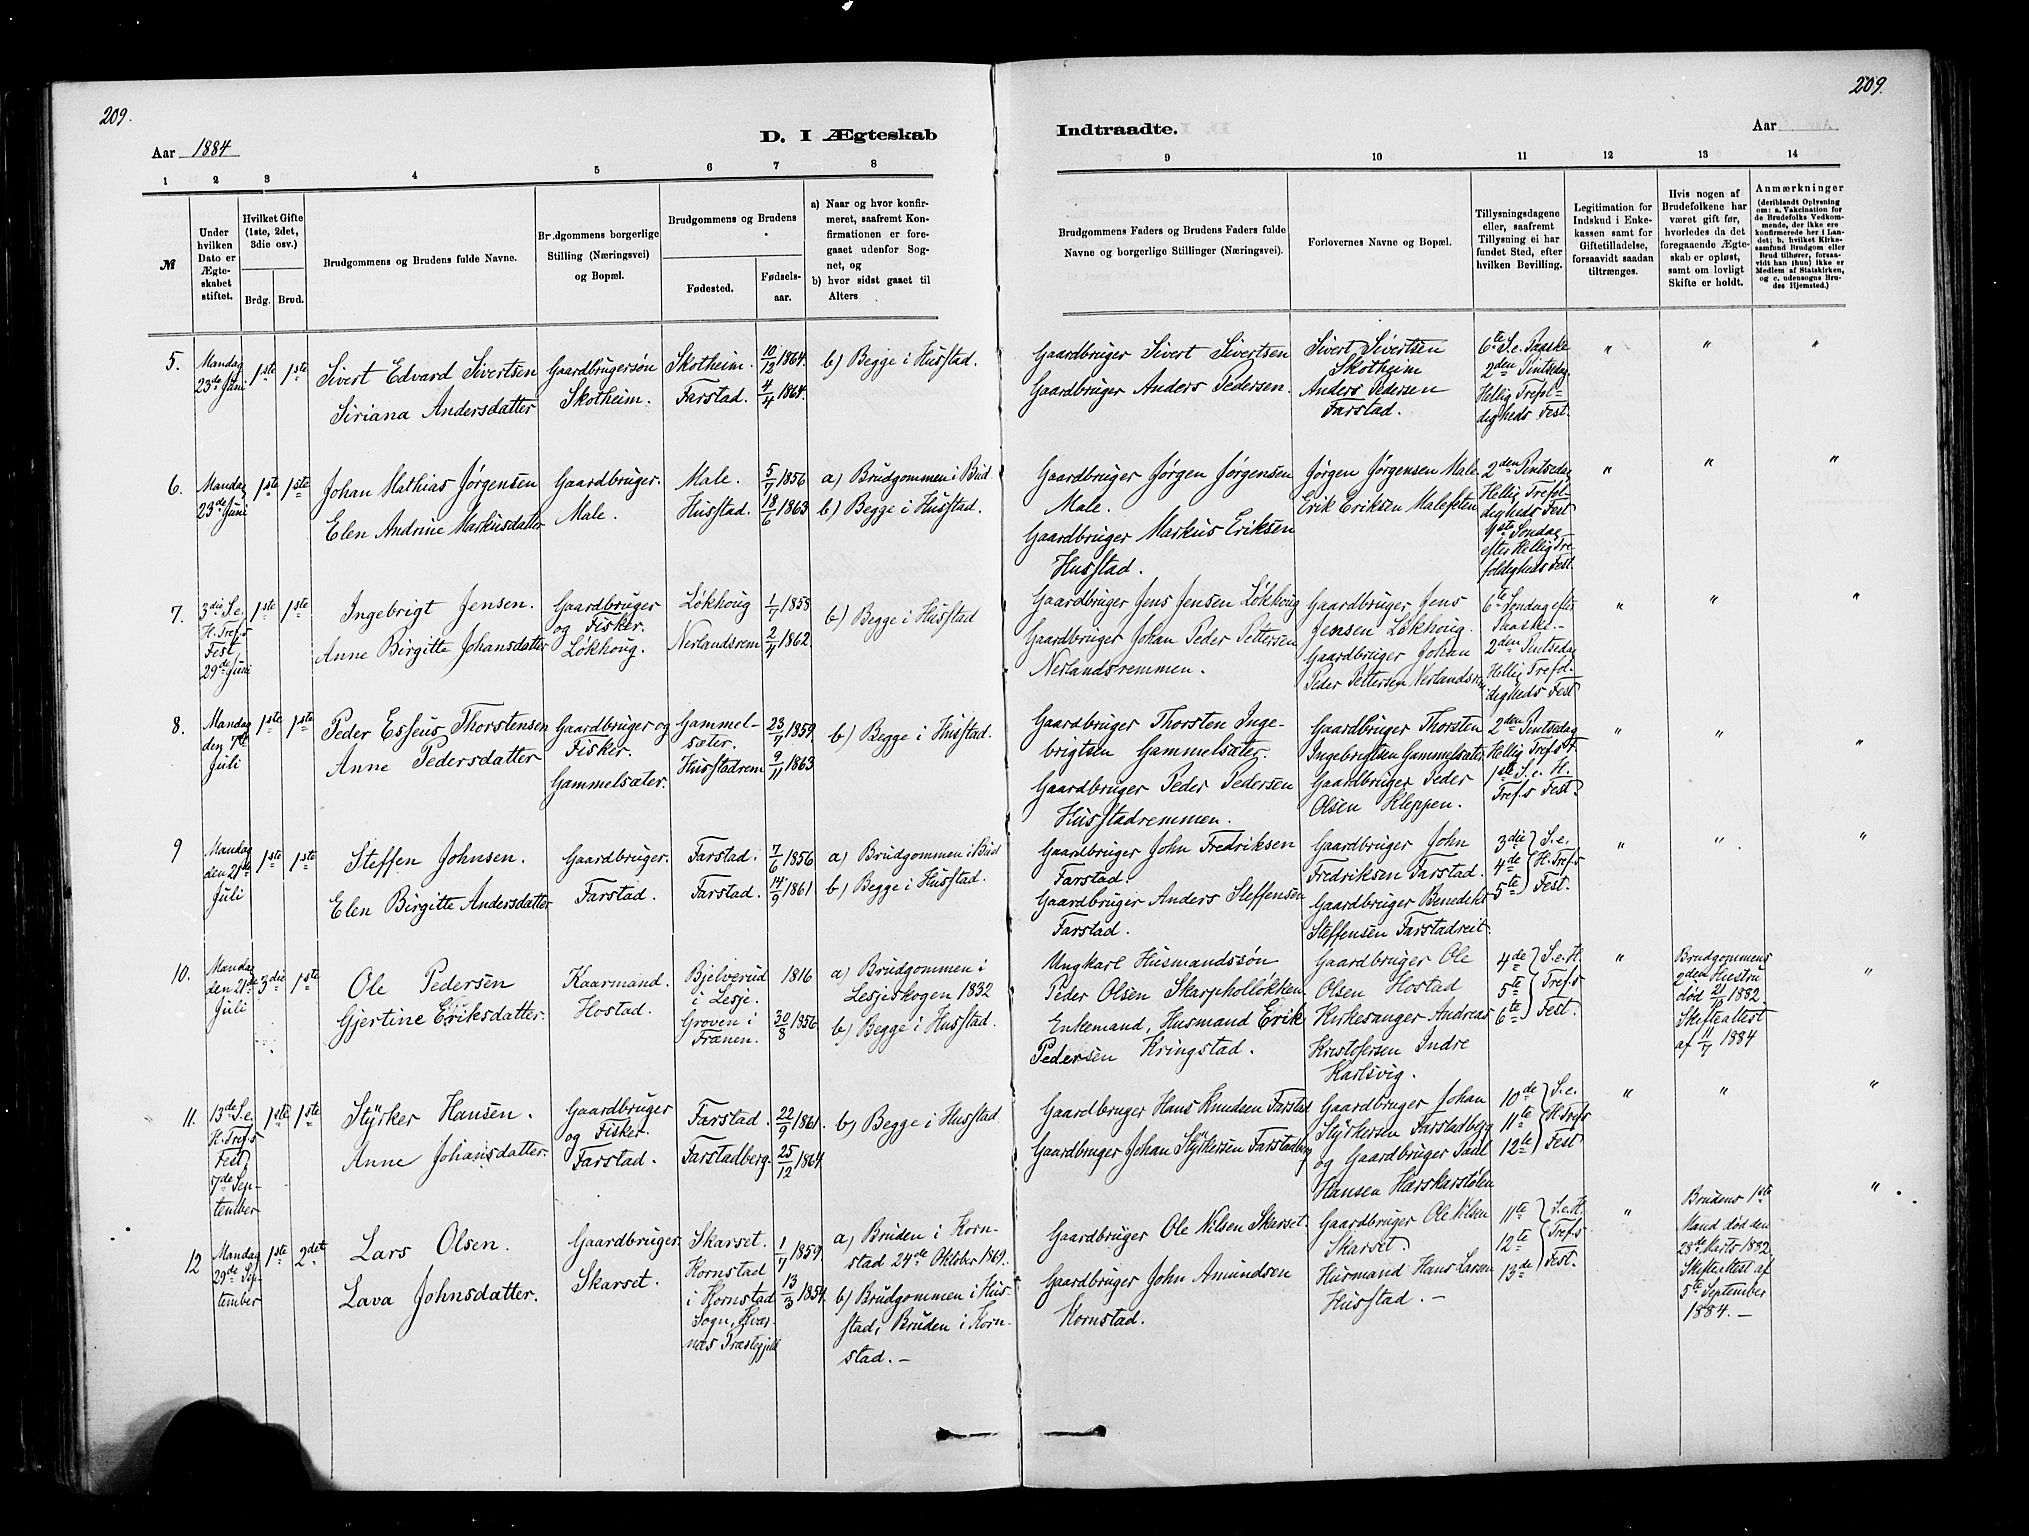 209.
209.
D. I Ægteskab
Indtraadte.
Aar 1884
Aar
1 2 3 4 5 6 7 8
9 10 11 12 13 14
№
Under hvilken Dato er Ægteskabet stiftet.
Hvilket Gifte (1ste, 2det, 3die osv.)
Brdg. Brud.
Brudgommens og Brudens fulde Navne.
Brudgommens borgerlige Stilling (Næringsvei) og Bopæl.
Brudgommens og Brudens
Fødested.
Fødselsaar.
a) Naar og hvor konfirmeret, saafremt Konfirmationen er foregaaet udenfor Sognet, og
b) hvor sidst gaaet til Alters
Brudgommens Faders og Brudens Faders fulde Navne og borgerlige Stillinger (Næringsvei).
Forlovernes Navne og Bopæl.
Tillysningsdagene eller, saafremt Tillysning ei har fundet Sted, efter hvilken Bevilling.
Legitimation for Indskud i Enkekassen samt for Giftetilladelse, forsaavidt saadan tiltrænges.
Hvis nogen af Brudefolkene har været gift før, hvorledes da det foregaaende Ægteskab er opløst, samt om lovligt Skifte er holdt.
Anmærkninger
(deriblandt Oplysning om: a. Vakcination for de Brudefolks Vedkommende, der ikke ere konfirmerede her i Landet; b. hvilket Kirkesamfund Brudgom eller Brud tilhører, forsaavidt han (hun) ikke er Medlem af Statskirken, og c. udensogns Brudes Hjemsted.)
5. Mandag 23de Juni 1ste 1ste
Sivert Edvard Sivertsen
Siriana Andersdatter
Gaardbrugersøn
Skotheim.
Skotheim. 10/13 1864.
Farstad. 4/4 1864.
b) Begge i Husstad.
Gaardbruger Sivert Sivertsen
Gaardbruger Anders Pedersen.
Sivert Sivertsen
Skotheim
Anders Pedersen
Farstad.
6te S. e. Paaske
2den Pintsedag
Hellig Trefol-
digheds Fest.
" " "
6. Mandag 23de Juni 1ste 1ste
Johan Mathias Jørgensen
Elen Andrine Markusdatter
Gaardbruger.
Male.
Male. 5/7 1856
Husstad. 18/6 1863
a) Brudgommen i Bud
b) Begge i Husstad.
Gaardbruger Jørgen Jørgensen
Male.
Gaardbruger Markus Eriksen
Husstad.
Jørgen Jørgensen Male
Erik Eriksen Malefeten
2den Pintsedag
Hellig Trefol-
digheds Fest
1ste Søndag
efter Hellig Tre-
foldigheds Fest.
" " "
7. 3die S. e. H. Tref.s Fest, 29de Juni 1ste 1ste
Ingebrigt Jensen.
Anne Birgitte Johansdatter
Gaardbruger
og Fisker.
Løkhoug.
Løkhoug 1/7 1858
Nerlandsrem 2/4 1862.
b) Begge i Husstad
Gaardbruger Jens Jensen Løkhoug
Gaardbruger Johan Peder Pettersen
Nerlandsremmen.
Gaardbruger Jens
Jensen Løkhoug.
Gaardbruger Johan
Peder Pettersen Nerlandsrem
6te Søndag efter
Paaske.-
2den Pintsedag
Hellig Trefol-
digheds Fest
" " "
8. Mandag den 7de Juli 1ste 1ste
Peder Esseus Thorstensen
Anne Pedersdatter
Gaardbruger og
Fisker.
Gammelsæter.
Gammel-
sæter. 23/7 1859
Husstadrem 9/11 1863
b) Begge i Husstad.
Gaardbruger Thorsten Inge-
brigtsen Gammelsæter.
Gaardbruger Peder Pedersen
Husstadremmen.
Gaardbruger Thorsten
Ingebrigtsen Gammelsæter
Gaardbruger Peder
Olsen Kleppen.
2den Pintsedag
Hellig Tref.s F.
1ste S. e. H.
Tref.s Fest.
" " "
9 Mandag den 21de Juli 1ste 1ste
Steffen Johnsen.
Elen Birgitte Andersdatter
Gaardbruger.
Farstad.
Farstad. 7/6 1856
Farstad. 14/9 1861
a) Brudgommen i Bud
b) Begge i Husstad.
Gaardbruger John Fredriksen
Farstad.
Gaardbruger Anders Steffensen
Farstad.
Gaardbruger John
Fredriksen Farstad.
Gaardbruger Benedikt
Steffensen Farstadreit.
3die S. e.
4de H. Tref.s
5te Fest.
" " "
10. Mandag den 21de Juli 3die 1ste
Ole Pedersen
Gjertine Eriksdatter.
Kaarmand.
Hostad.
Bjelverud
i Lesje. 1816
Groven i
Frænen. 30/8 1856
a) Brudgommen i
Lesjeskogen 1832
b) Begge i Husstad.
Ungkarl Husmandssøn
Peder Olsen Skarpholløkken
Enkemand, Husmand Erik
Pedersen Kringstad.
Gaardbruger Ole
Olsen Hostad
Kirkesanger Andreas
Kristofersen Indre
Karlsvig.
4de S. e. H.
5te Tref.s
6te Fest.
"
Brudgommens
2den Hustru
død 21/10 1882.
Skifteattest
af 11/7 1884
"
11. 13de S. e. H. Tref.s Fest, 7de Sep-
tember 1ste 1ste
Styrker Hansen.
Anne Johansdatter.
Gaardbruger
og Fisker.
Farstad.
Farstad. 22/9 1861.
Farstadberg. 25/12 1864.
b) Begge i Husstad
Gaardbruger Hans Knudsen Farstad
Gaardbruger Johan Styrkersen Farstadberg
Gaardbruger Johan
Styrkersen Farstadberg
og Gaardbruger Paul
Hansen Harskarstølen
10de S. e.
11te H. Tref.s
12te Fest
" " "
12 Mandag 29de Sep-
tember 1ste 2det
Lars Olsen.
Lava Johnsdatter.
Gaardbruger.
Skarset.
Skarset. 1/7 1859.
Kornstad
i Kornstad
Sogn, Kvær-
næs Præstegjeld 13/3 1854.
a) Bruden i Korn-
stad 24de Oktober 1869.
b) Brudgommen i Hus-
stad, Bruden i Korn-
stad.-
Gaardbruger Ole Nilsen Skarset.
Gaardbruger John Amundsen
Kornstad.
Gaardbruger Ole Nilsen
Skarset.
Husmand Hans Larsen
Husstad.-
11te S. e. H.
12te Tref.s
13de Fest.
"
Brudens 1ste
Mand død den
28de Marts 1882.
Skifteattest af
5te September
1884.-
"